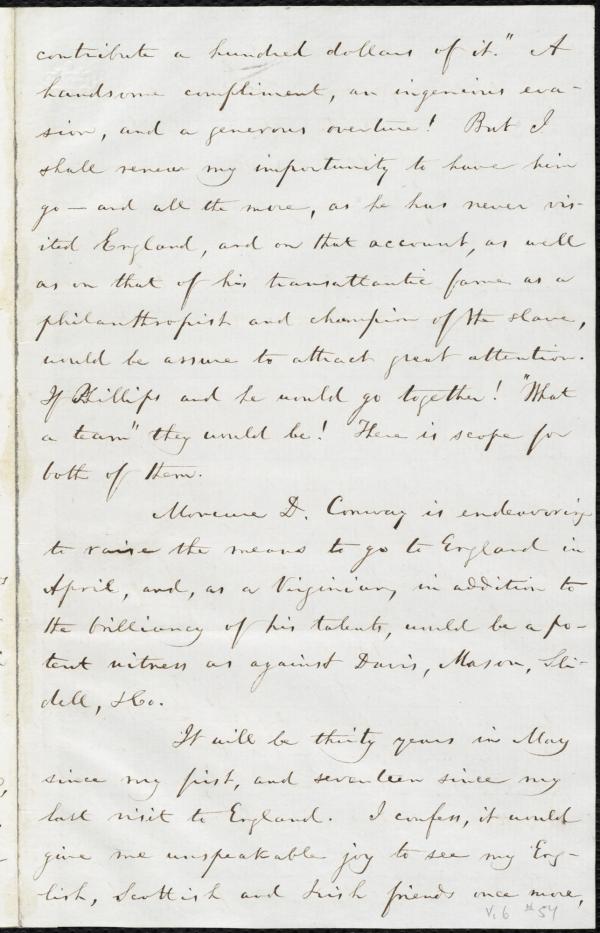 contribute a hundred dollars of it." A
handsome compliment, an ingenious eva-
sion, and a generous overture! But I
shall renew my importunity to have him
go — and all the more, as he has never vis-
ited England, and on that account, as well
as on that of his transatlantic fame as a
philanthropist and champion of the slave,
would be assure to attract great attention.
If Phillips and he would go together! "What
a team" they would be! There is scope for
both of them.
Moncure D. Conway is endeavoring
to raise the means to go to England in
April, and, as a Virginian, in addition to
the brilliancy of his talents, would be a po-
tent witness as against Davis, Mason, Sli-
dell, &Co.
It will be thirty years in May
since my first, and seventeen since my
last visit to England. I confess, it would
give me unspeakable joy to see my Eng-
lish, Scottish and Irish friends once more,
V.6 # 54